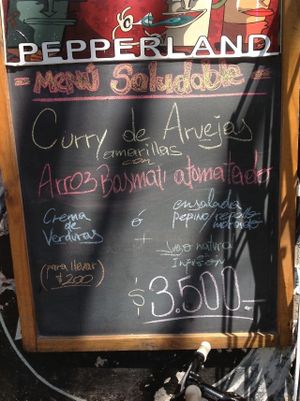 PEPPERLAND
Menú Saludable
Curry de Arvejas
amarillas
con
Arroz Basmati atomatado
Crema de Verduras
ó
ensalada
pepino/repollo
morado
+
Jugo natural
Infusión
(para llevar
$200)
$3.500.-